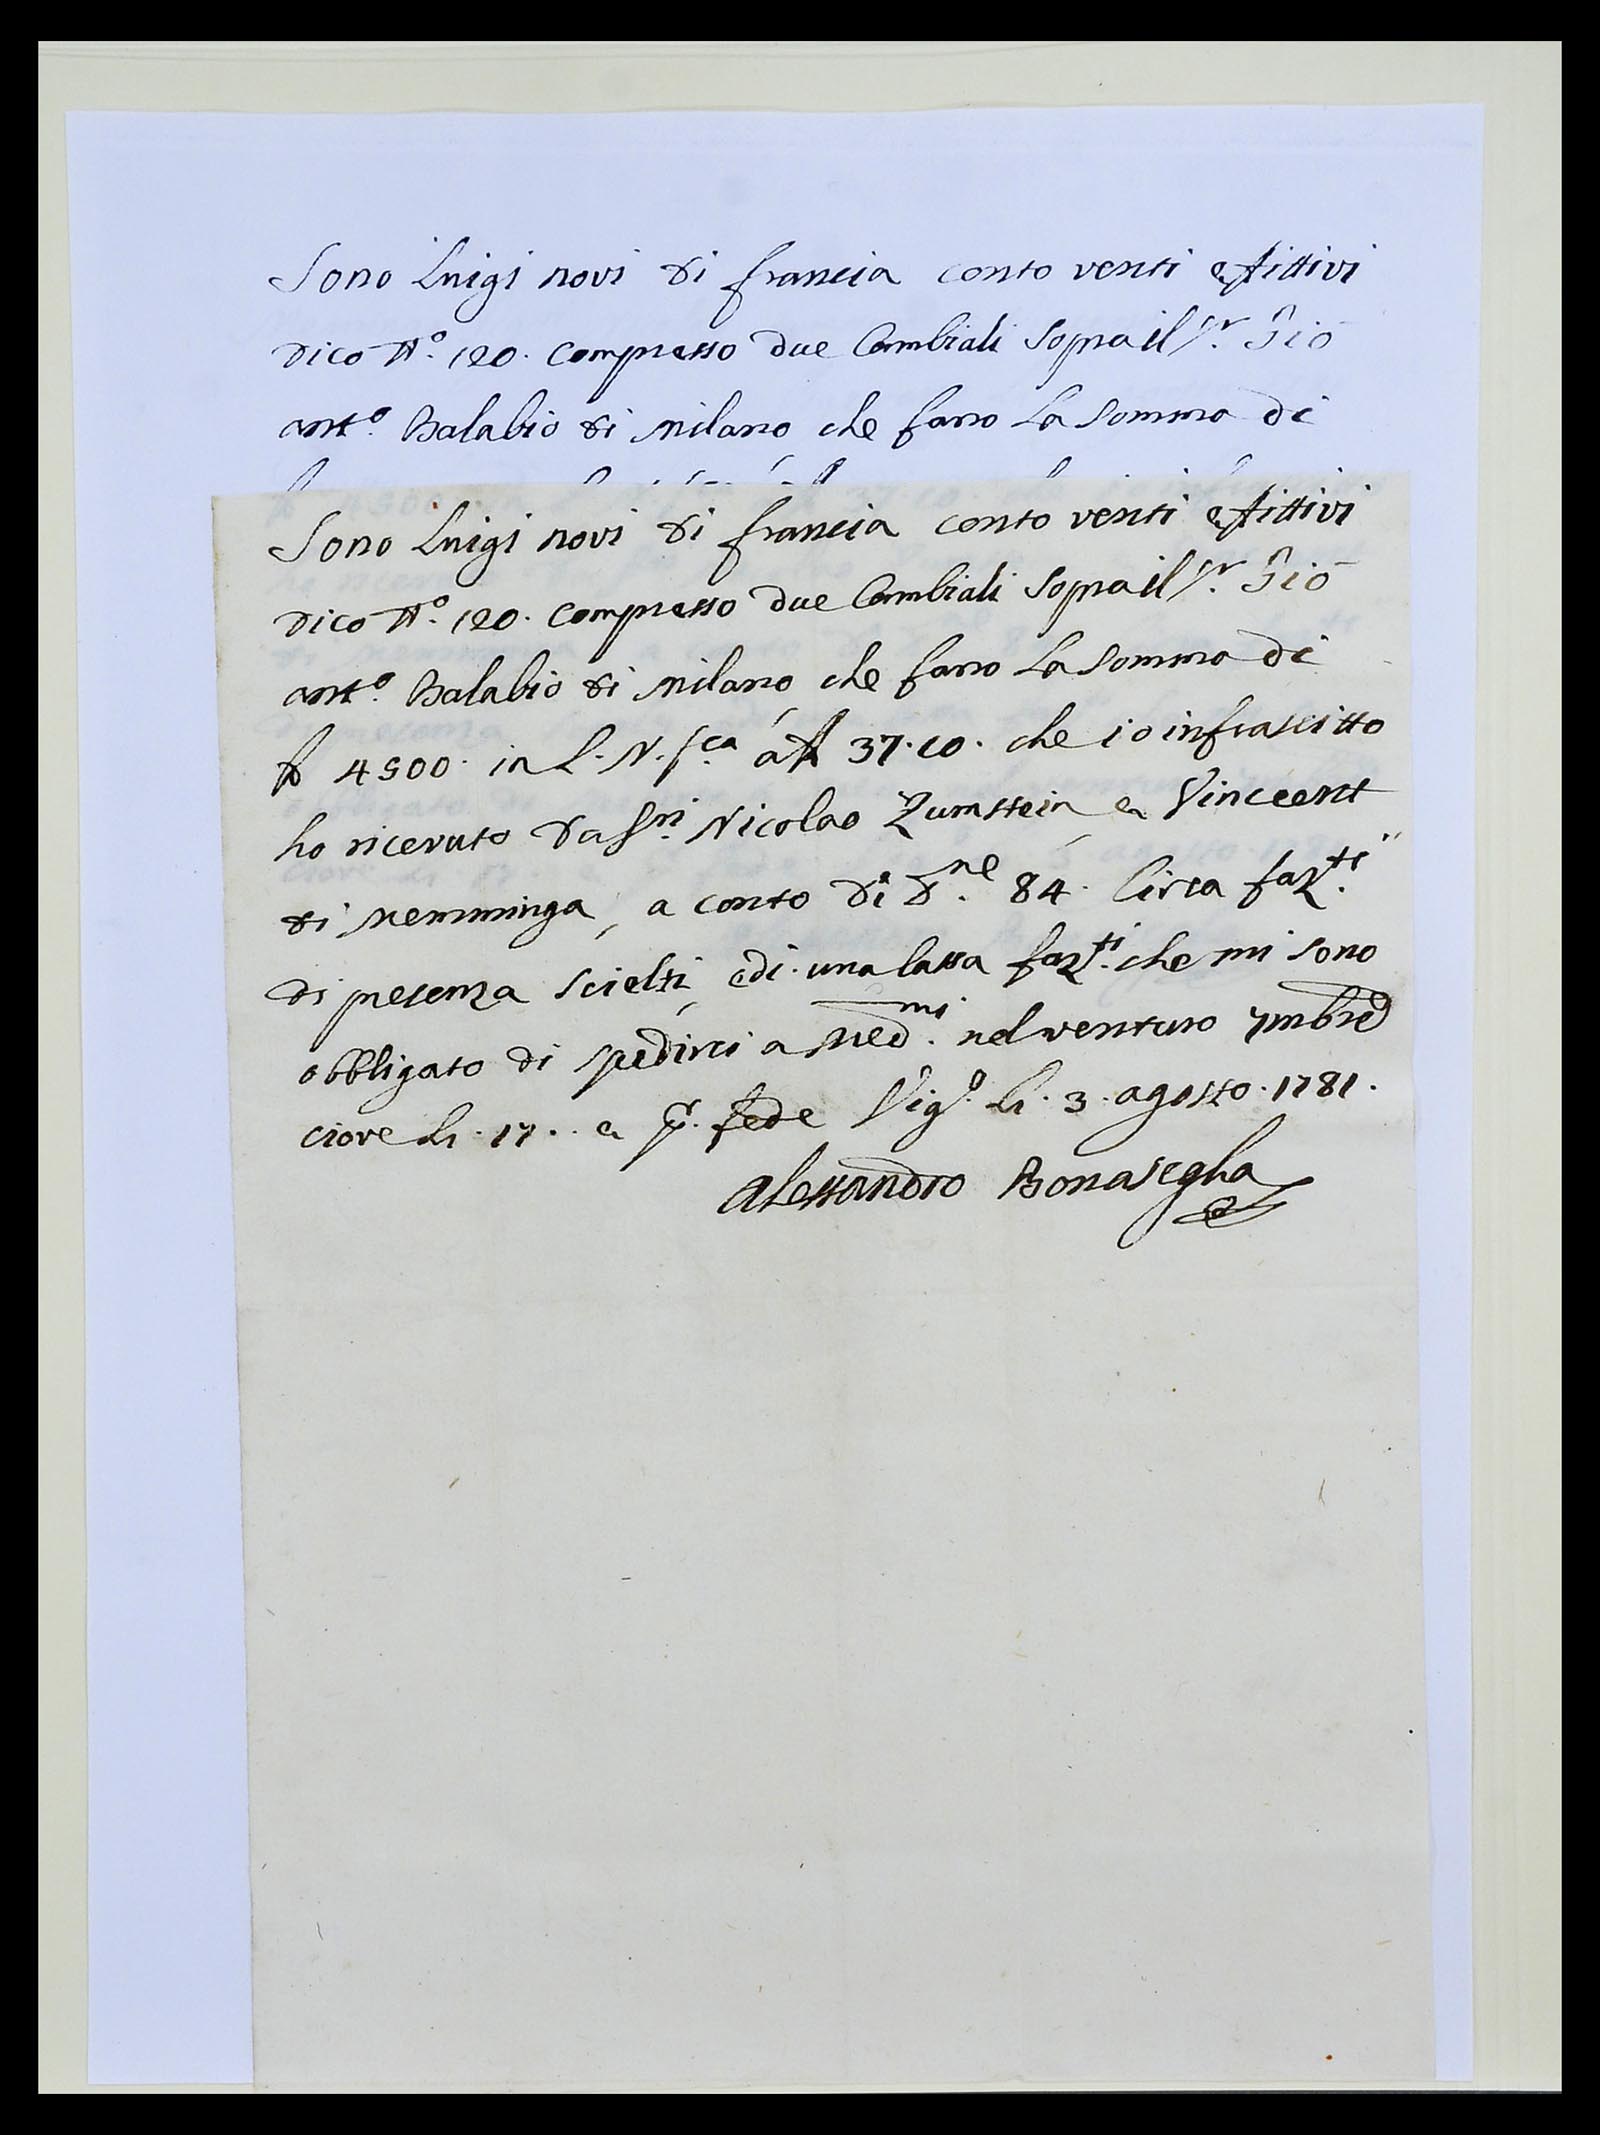 Sono Luigi novi di francia cento venti efittivi
dico N.º 120. compresso due Cambiali sopra il Sr. Gio
ant.º Balabio di Milano che fano La somma di
Sono Luigi novi di francia cento venti efittivi
dico N.º 120. compresso due Cambiali sopra il Sr. Gio
ant.º Balabio di Milano che fano La somma di
4500. in L. N. f.ca á 37.10. che io infrascitto
ho riceruto da Sri. Nicolao Zumstein e Vinceent
di Memminga, a conto di d.ne 84. Circa faz.ti
di presenza scielti, edi. una lassa faz.ti che mi sono
obbligato di spedirci a Med.mi nel venturo 7mbre
ciove Li. 17. e pr. fede Vig.º Li. 3. agosto. 1781.
Alessandro Bonaseglia